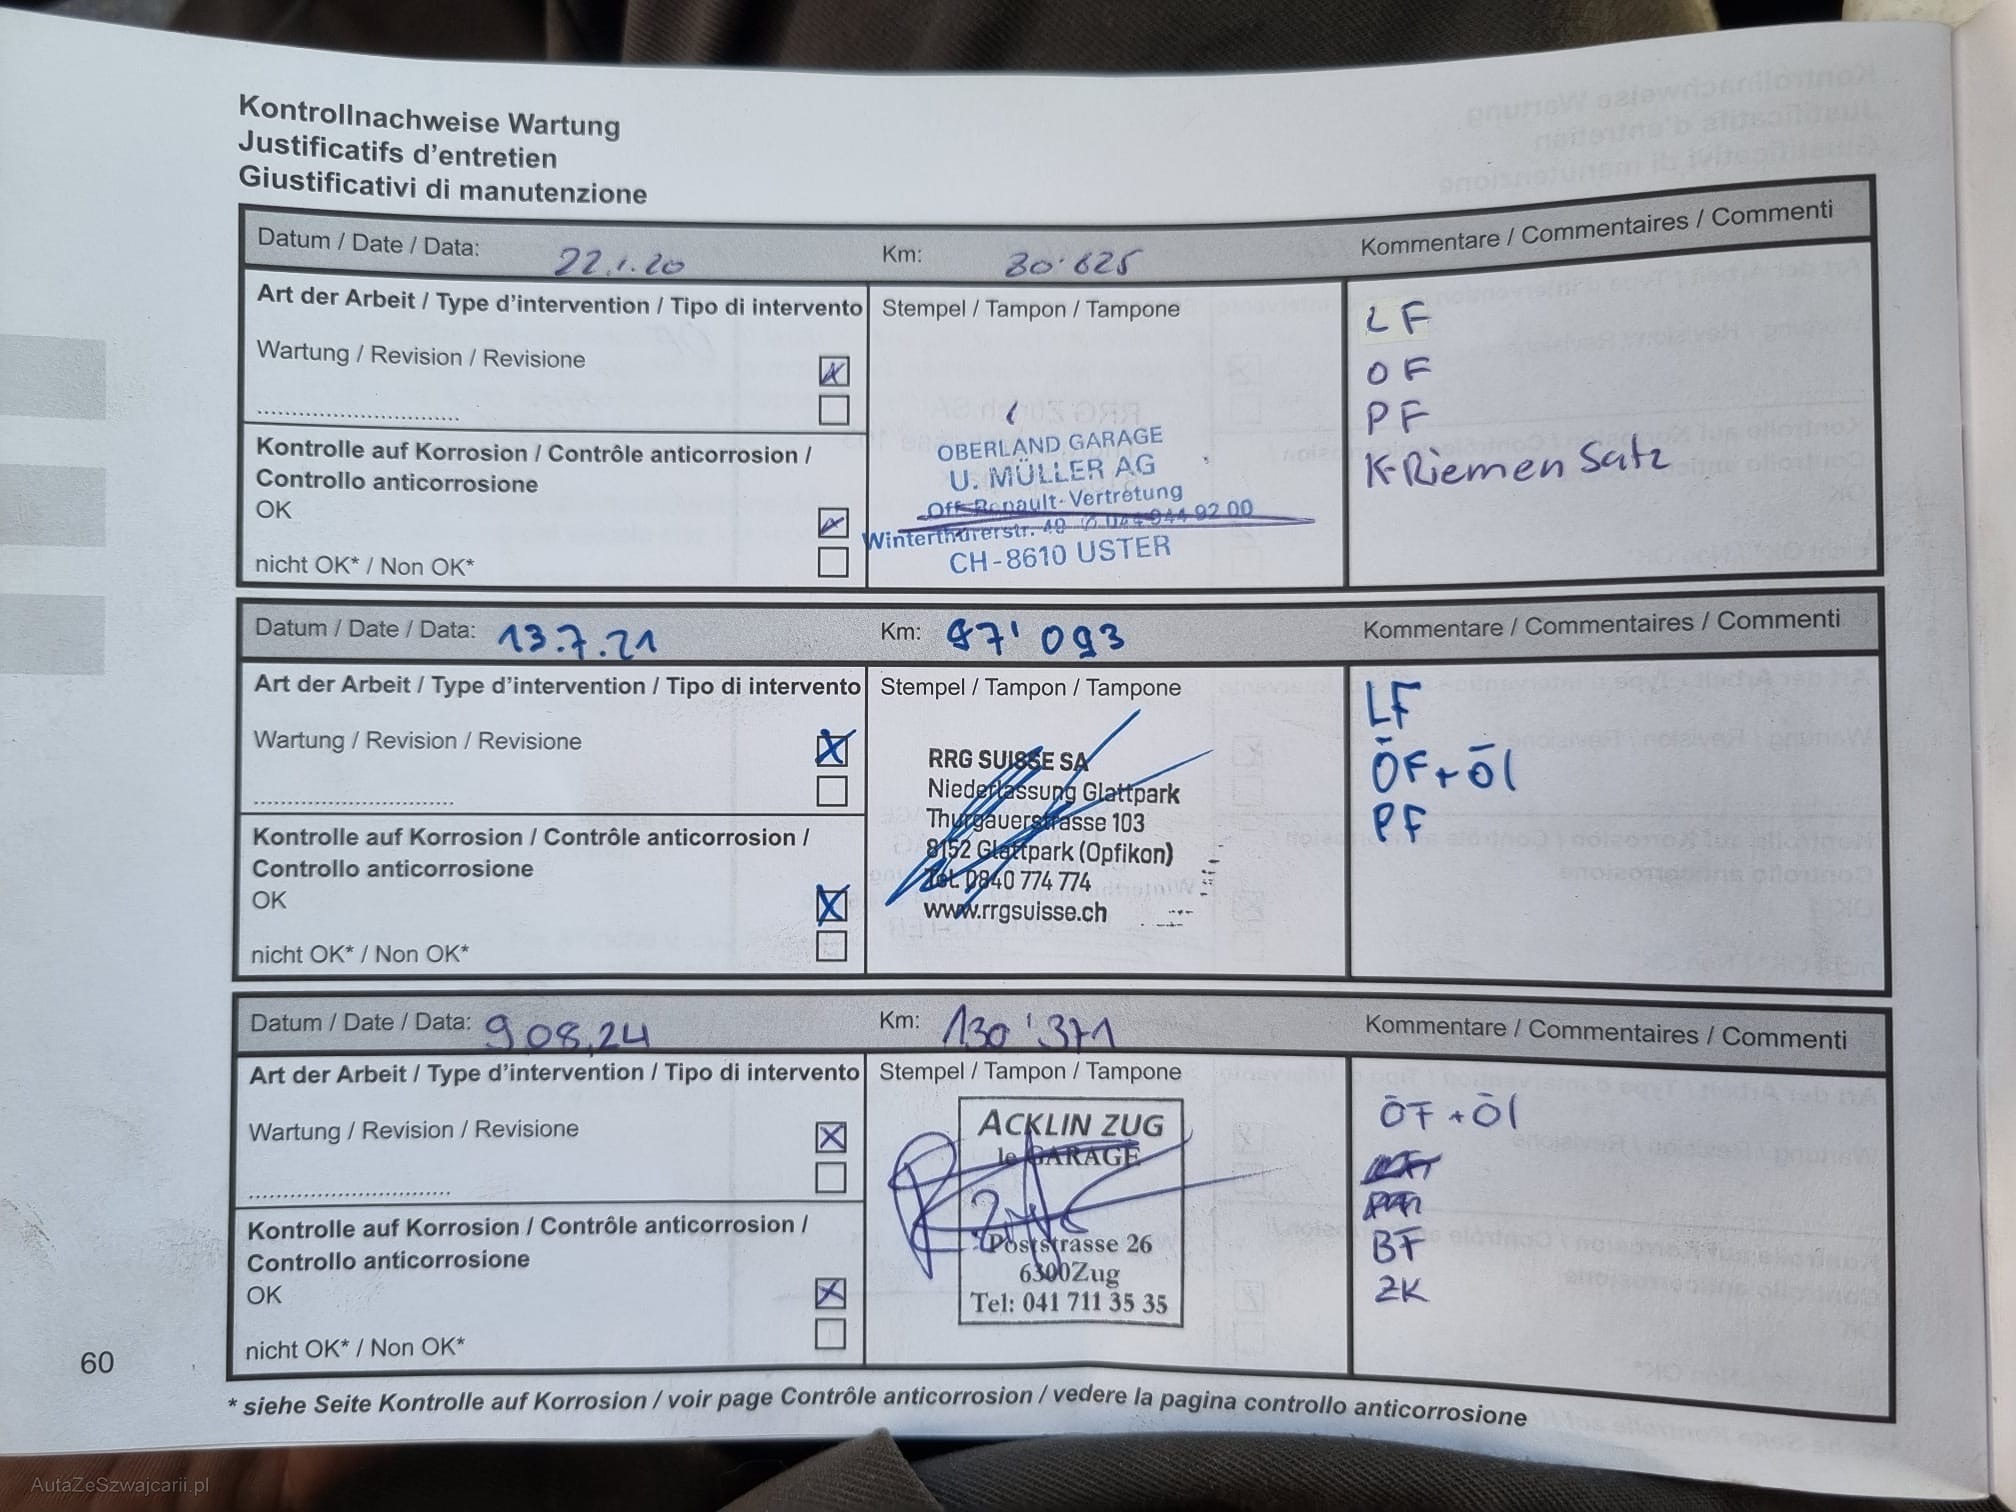 Kontrollnachweise Wartung
Justificatifs d'entretien
Giustificativi di manutenzione
Datum / Date / Data: 22.1.20 Km: 80'625 Kommentare / Commentaires / Commenti
Art der Arbeit / Type d'intervention / Tipo di intervento Stempel / Tampon / Tampone
Wartung / Revision / Revisione
Kontrolle auf Korrosion / Contrôle anticorrosion /
Controllo anticorrosione
OK
nicht OK* / Non OK*
OBERLAND GARAGE
U. MÜLLER AG
Off. Renault-Vertretung
Winterthurerstr. 944 92 00
CH-8610 USTER
LF
OF
PF
K-Riemen Satz
Datum / Date / Data: 13.7.21 Km: 97'093 Kommentare / Commentaires / Commenti
Art der Arbeit / Type d'intervention / Tipo di intervento Stempel / Tampon / Tampone
Wartung / Revision / Revisione
Kontrolle auf Korrosion / Contrôle anticorrosion /
Controllo anticorrosione
OK
nicht OK* / Non OK*
RRG SUISSE SA
Niederlassung Glattpark
Thurgauerstrasse 103
8152 Glattpark (Opfikon)
Tel. 0840 774 774
www.rrgsuisse.ch
LF
ÖF + Öl
PF
Datum / Date / Data: 9.08.24 Km: 130'371 Kommentare / Commentaires / Commenti
Art der Arbeit / Type d'intervention / Tipo di intervento Stempel / Tampon / Tampone
Wartung / Revision / Revisione
Kontrolle auf Korrosion / Contrôle anticorrosion /
Controllo anticorrosione
OK
nicht OK* / Non OK*
ACKLIN ZUG
le GARAGE
Poststrasse 26
6300 Zug
Tel: 041 711 35 35
ÖF + Öl
BF
ZK
* siehe Seite Kontrolle auf Korrosion / voir page Contrôle anticorrosion / vedere la pagina controllo anticorrosione
60
AutaZeSzwajcarii.pl